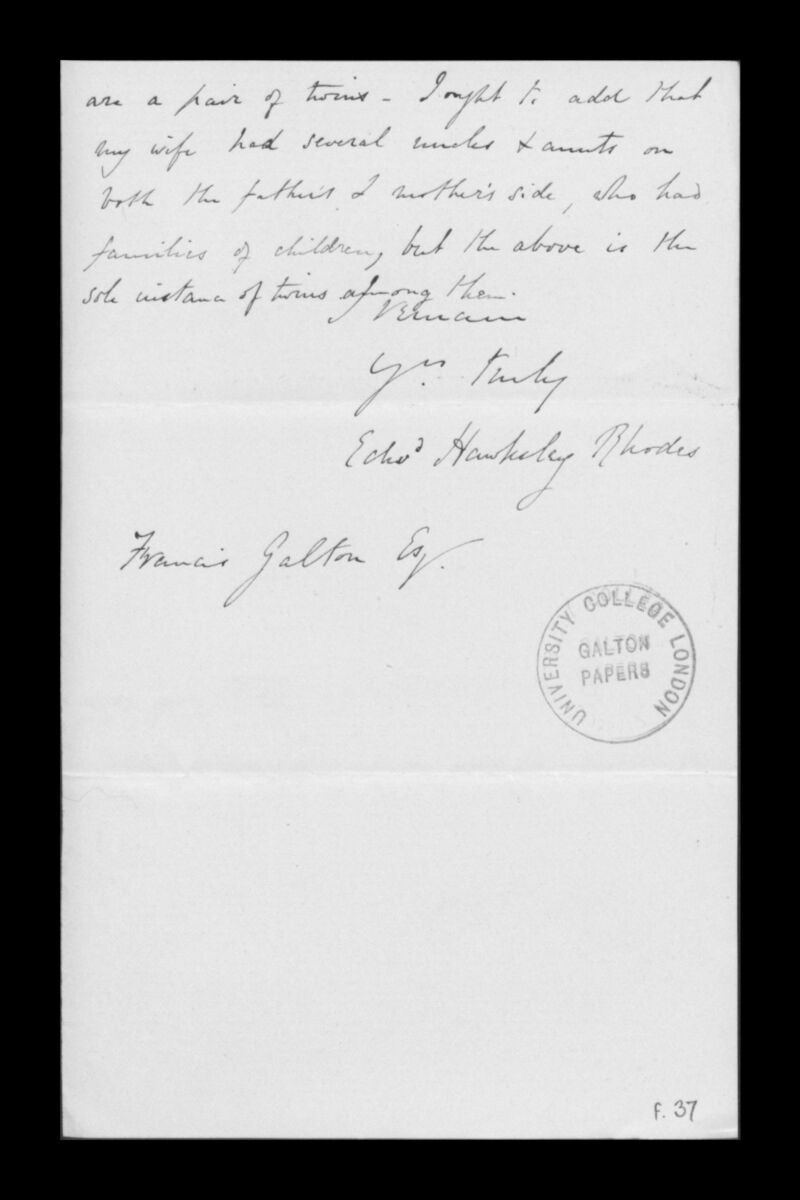 are a pair of twins - I ought to add that
my wife had several uncles & aunts on
both the father's & mother's side, who had
families of children, but the above is the
sole instance of twins among them.
I remain
Yrs. truly
Edwd Hawksley Rhodes
Francis Galton Esq.
UNIVERSITY COLLEGE LONDON
GALTON
PAPERS
F. 37